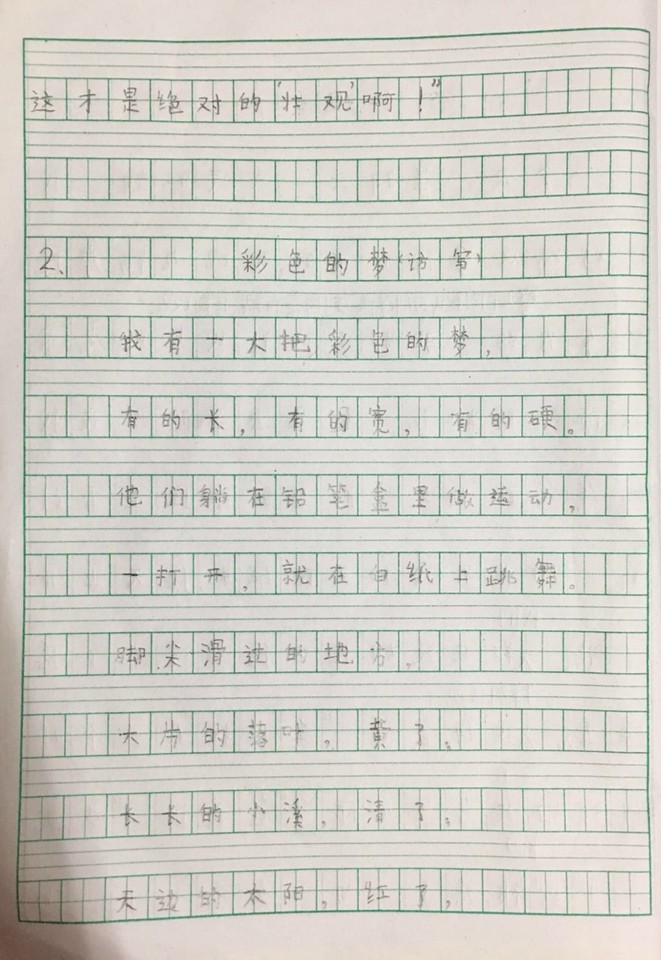 这才是绝对的‘壮观’啊！”
2、彩色的梦（访写）
我有一大把彩色的梦，
有的长，有的宽，有的硬。
他们躺在铅笔盒里做运动，
一打开，就在白纸上跳舞。
脚尖滑过的地方，
大片的落叶，黄了，
长长的小溪，清了，
天边的太阳，红了，